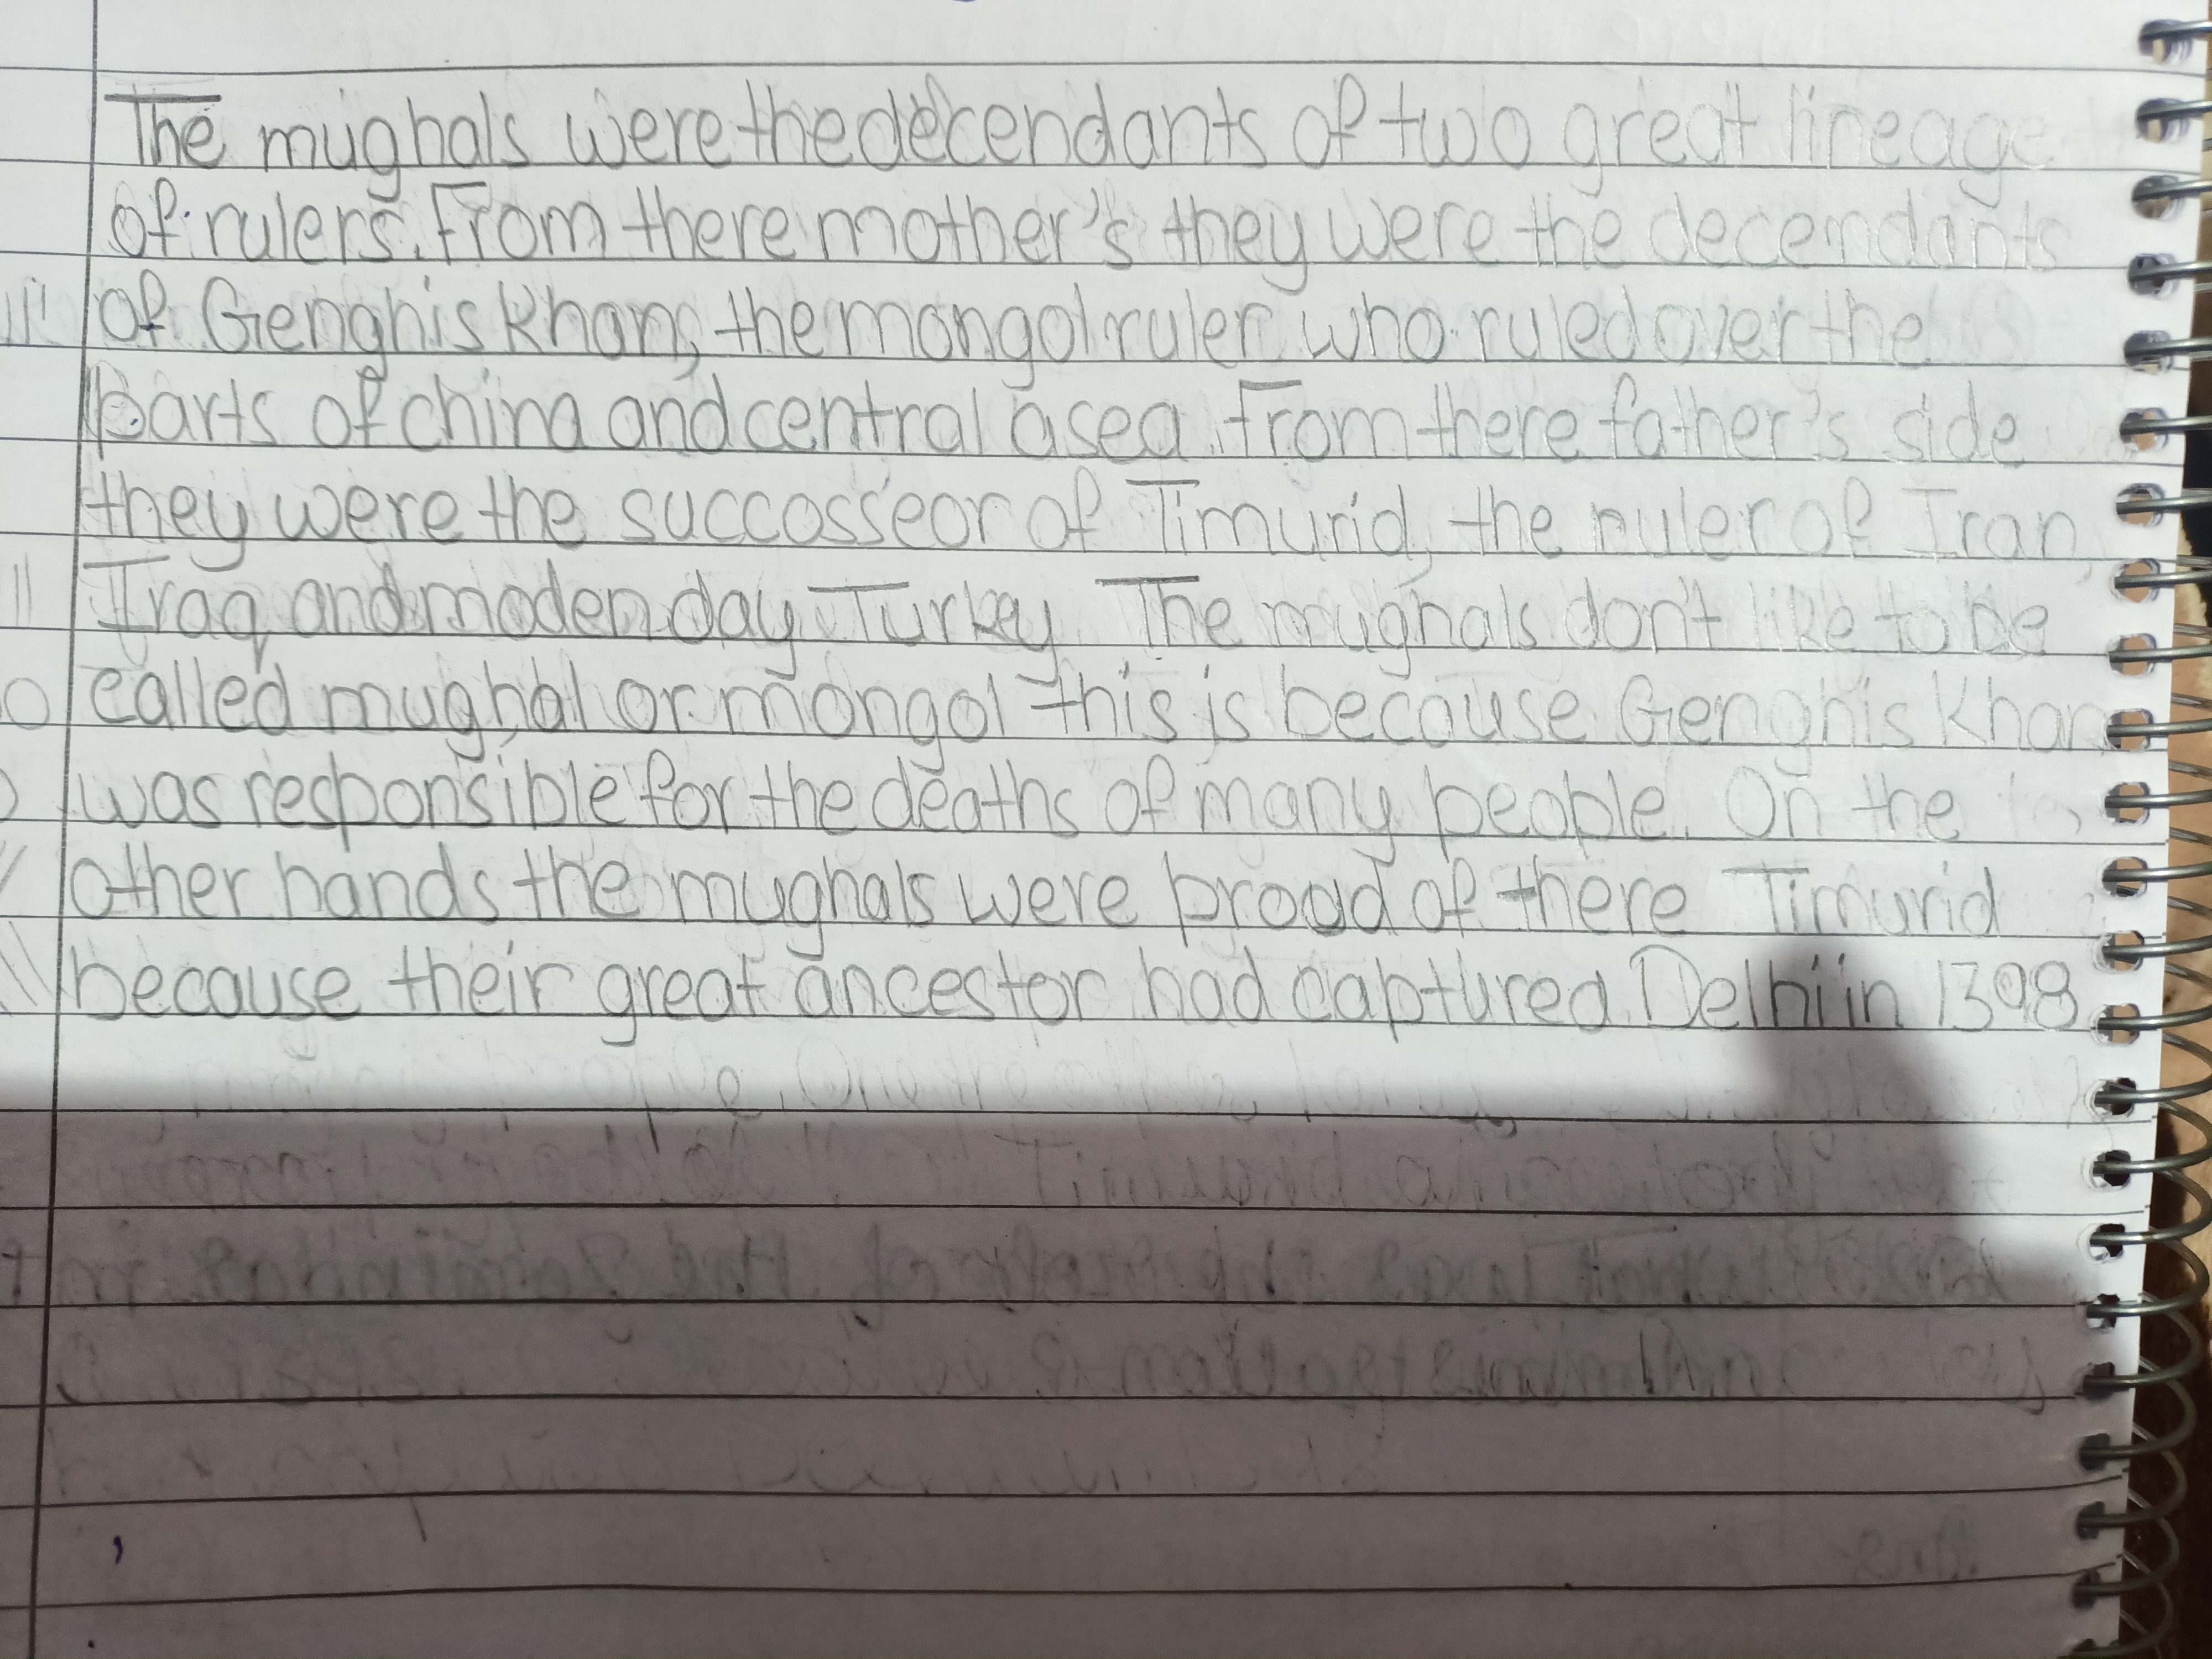 The mughals were the decendants of two great lineage
of rulers. From there mother's they were the decendants
of Genghis Khan, the mongol ruler who ruled over the
parts of china and central asea. From there father's side
they were the successeor of Timurid, the ruler of Iran,
Iraq and moden day Turkey. The mughals don't like to be
called mughal or mongol this is because Genghis Khan
was responsible for the deaths of many people. On the
other hands the mughals were proud of there Timurid
because their great ancestor had captured Delhi in 1398